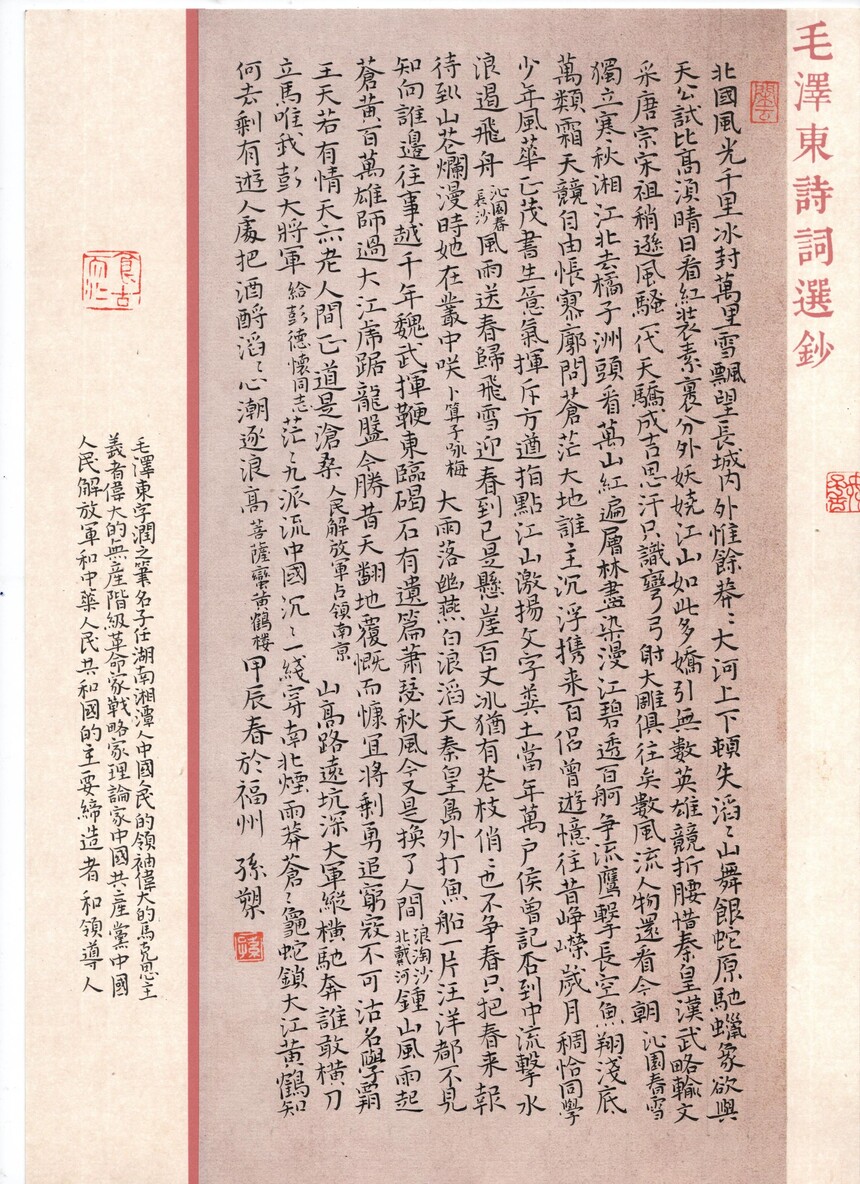 毛澤東詩詞選鈔
北國風光千里冰封萬里雪飄望長城內外惟餘莽〻大河上下頓失滔〻山舞銀蛇原馳蠟象欲與
天公試比高須晴日看紅裝素裹分外妖嬈江山如此多嬌引無數英雄競折腰惜秦皇漢武略輸文
采唐宗宋祖稍遜風騷一代天驕成吉思汗只識彎弓射大雕俱往矣數風流人物還看今朝 沁園春雪
獨立寒秋湘江北去橘子洲頭看萬山紅遍層林盡染漫江碧透百舸爭流鷹擊長空魚翔淺底
萬類霜天競自由悵寥廓問蒼茫大地誰主沉浮攜来百侶曾遊憶往昔崢嶸歲月稠恰同學
少年風華正茂書生意氣揮斥方遒指點江山激揚文字糞土當年萬户侯曾記否到中流擊水
浪遏飛舟 沁園春長沙 風雨送春歸飛雪迎春到已是懸崖百丈冰猶有花枝俏〻也不爭春只把春来報
待到山花爛漫時她在叢中咲 卜算子咏梅 大雨落幽燕白浪滔天秦皇島外打魚船一片汪洋都不見
知向誰邊往事越千年魏武揮鞭東臨碣石有遺篇蕭瑟秋風今又是換了人間 浪淘沙北戴河 鍾山風雨起
蒼黃百萬雄師過大江虎踞龍盤今勝昔天翻地覆慨而慷宜將剩勇追窮寇不可沽名學霸
王天若有情天亦老人間正道是滄桑 人民解放軍占領南京 山高路遠坑深大軍縱橫馳奔誰敢橫刀
立馬唯我彭大將軍 給彭德懷同志 茫〻九派流中國沉〻一綫穿南北煙雨莽蒼〻龜蛇鎖大江黃鶴知
何去剩有遊人處把酒酹滔〻心潮逐浪高 菩薩蠻黃鶴樓 甲辰春於福州 孫槊
毛澤東字潤之筆名子任湖南湘潭人中國人民的領袖偉大的馬克思主
義者偉大的無產階級革命家戰略家理論家中國共產黨中國
人民解放軍和中華人民共和國的主要締造者和領導人